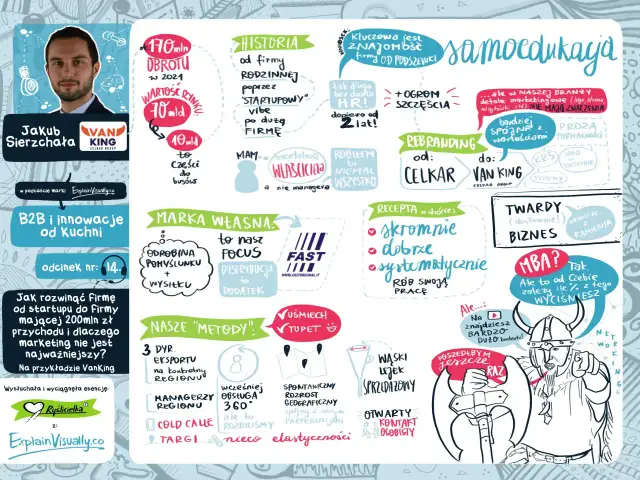 Jakub
Sierzchała
VAN
KING
CELKAR GROUP
w podcaście marki ExplainVisually.co
B2B i innowacje
od Kuchni
odcinek nr: 14.
Jak rozwinąć firmę
od startupu do firmy
mającej 200mln zł
przychodu i dlaczego
marketing nie jest
najważniejszy?
Na przykładzie VanKing
Wysłuchała i wyciągnęła esencję:
Ryślicielka
z:
ExplainVisually.co
170 mln
OBROTU
w 2021
WARTOŚĆ RYNKU
70 mld
10 mld
to
CZĘŚCI
do
busów
HISTORIA
od firmy
RODZINNEJ
poprzez
"STARTUPOWY"
vibe
po dużą
FIRMĘ
Kluczowa jest
ZNAJOMOŚĆ
firmy OD PODSZEWKI
HR!
dopiero od
2 lat!
+ OGROM
SZCZĘŚCIA
samoedukacja
MAM
WŁAŚCICIELA
a nie managera
PROBLEM
to
NIEMAL
WSZYSTKO
...ale w NASZEJ BRANŻY
bardziej
SPÓJNA z
wartościami
REBRANDING
od:
CELKAR
do:
VAN KING
CELKAR GROUP
MARKA WŁASNA:
ODROBINA
POMYŚLUNKU
i
WYSIŁKU
to nasz
FOCUS
DYSTRYBUCJA
to
DODATEK
FAST
RECEPTA w skrócie:
skromnie
dobrze
systematycznie
RÓB SWOJĄ
PRACĘ
TWARDY
BIZNES
MBA?
Tak
Ale to od Ciebie
zależy ile % z tego
WYCIŚNIESZ
NETWORKING
NASZE "METODY":
UŚMIECH
TUPET
3 DYR
EKSPORTU
na konkretny
REGIONU
MANAGERZY
REGIONU
COLD CALLE
TARGI
nieco elastyczności
8
wcześniej
OBSŁUGA
360°
SPONTANICZNY
ROZROST
GEOGRAFICZNY
WĄSKI
LEJEK
SPRZEDAŻOWY
OTWARTY
KONTAKT
OSOBISTY
Ale...
Na
znajdziesz
BARDZO
DUŻO
POSZEDŁBYM
jeszcze
RAZ